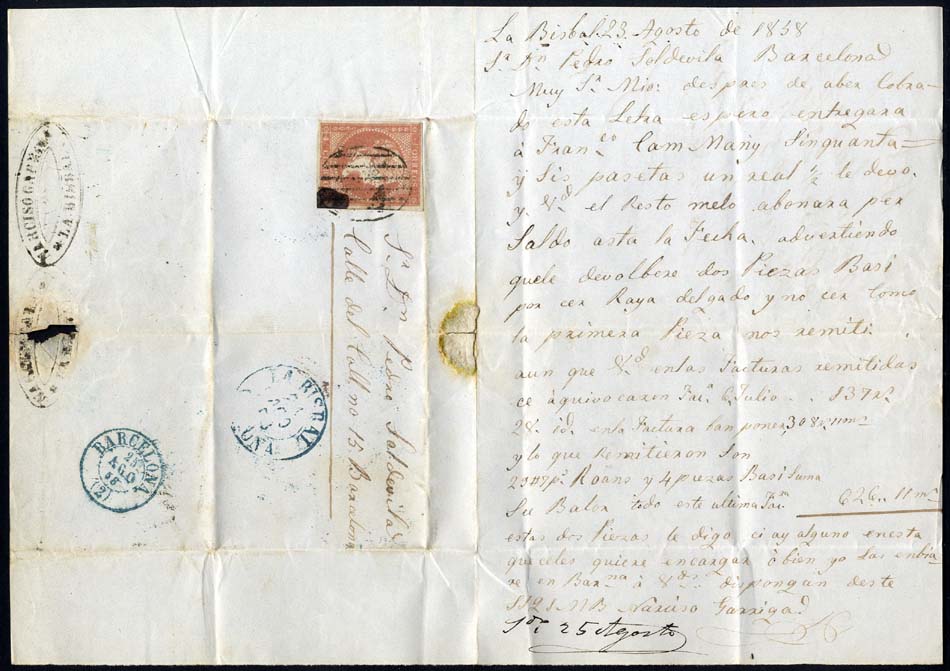 La Bisbal 23 Agosto de 1858
Sr Dn Pedro Soldevila Barcelona
Muy Sr Mio: despres de aber Cobra-
do esta Letra espero entregara
à Franco Cam Mañy Sinquanta
y Sis pasetas un real 1/2 le devo.
y Vd el Resto melo abonara per
Saldo asta la Fecha. advertiendo
quele devolbere dos Piezas Basi
por cer Raya delgado y no cer Como
la primera Pieza nos remiti.
aun que Vd enlas Facturas remitidas
ce àquivocaron Fac 6 Julio
28. id. enla Factura
y lo que Remitieron Son
Roans y 4 piezas Basi Suma
Su Balor todo este ultima Fac. 626.. 11 ms
estas dos Piezas le digo ci ay alguno enesta
queceles quiere encargar ò bien yo las enbia
re en Barna à Vds dispongan deste
SSQSMB Narciso Garriga
25 Agosto
Sr Dn Pedro Saldevila
Calle del Call no 15 Barcelona
CORREOS
LA BISBAL
BARCELONA
25
AGO
58
(2)
NARCISO GARRIGA
LA BISBAL